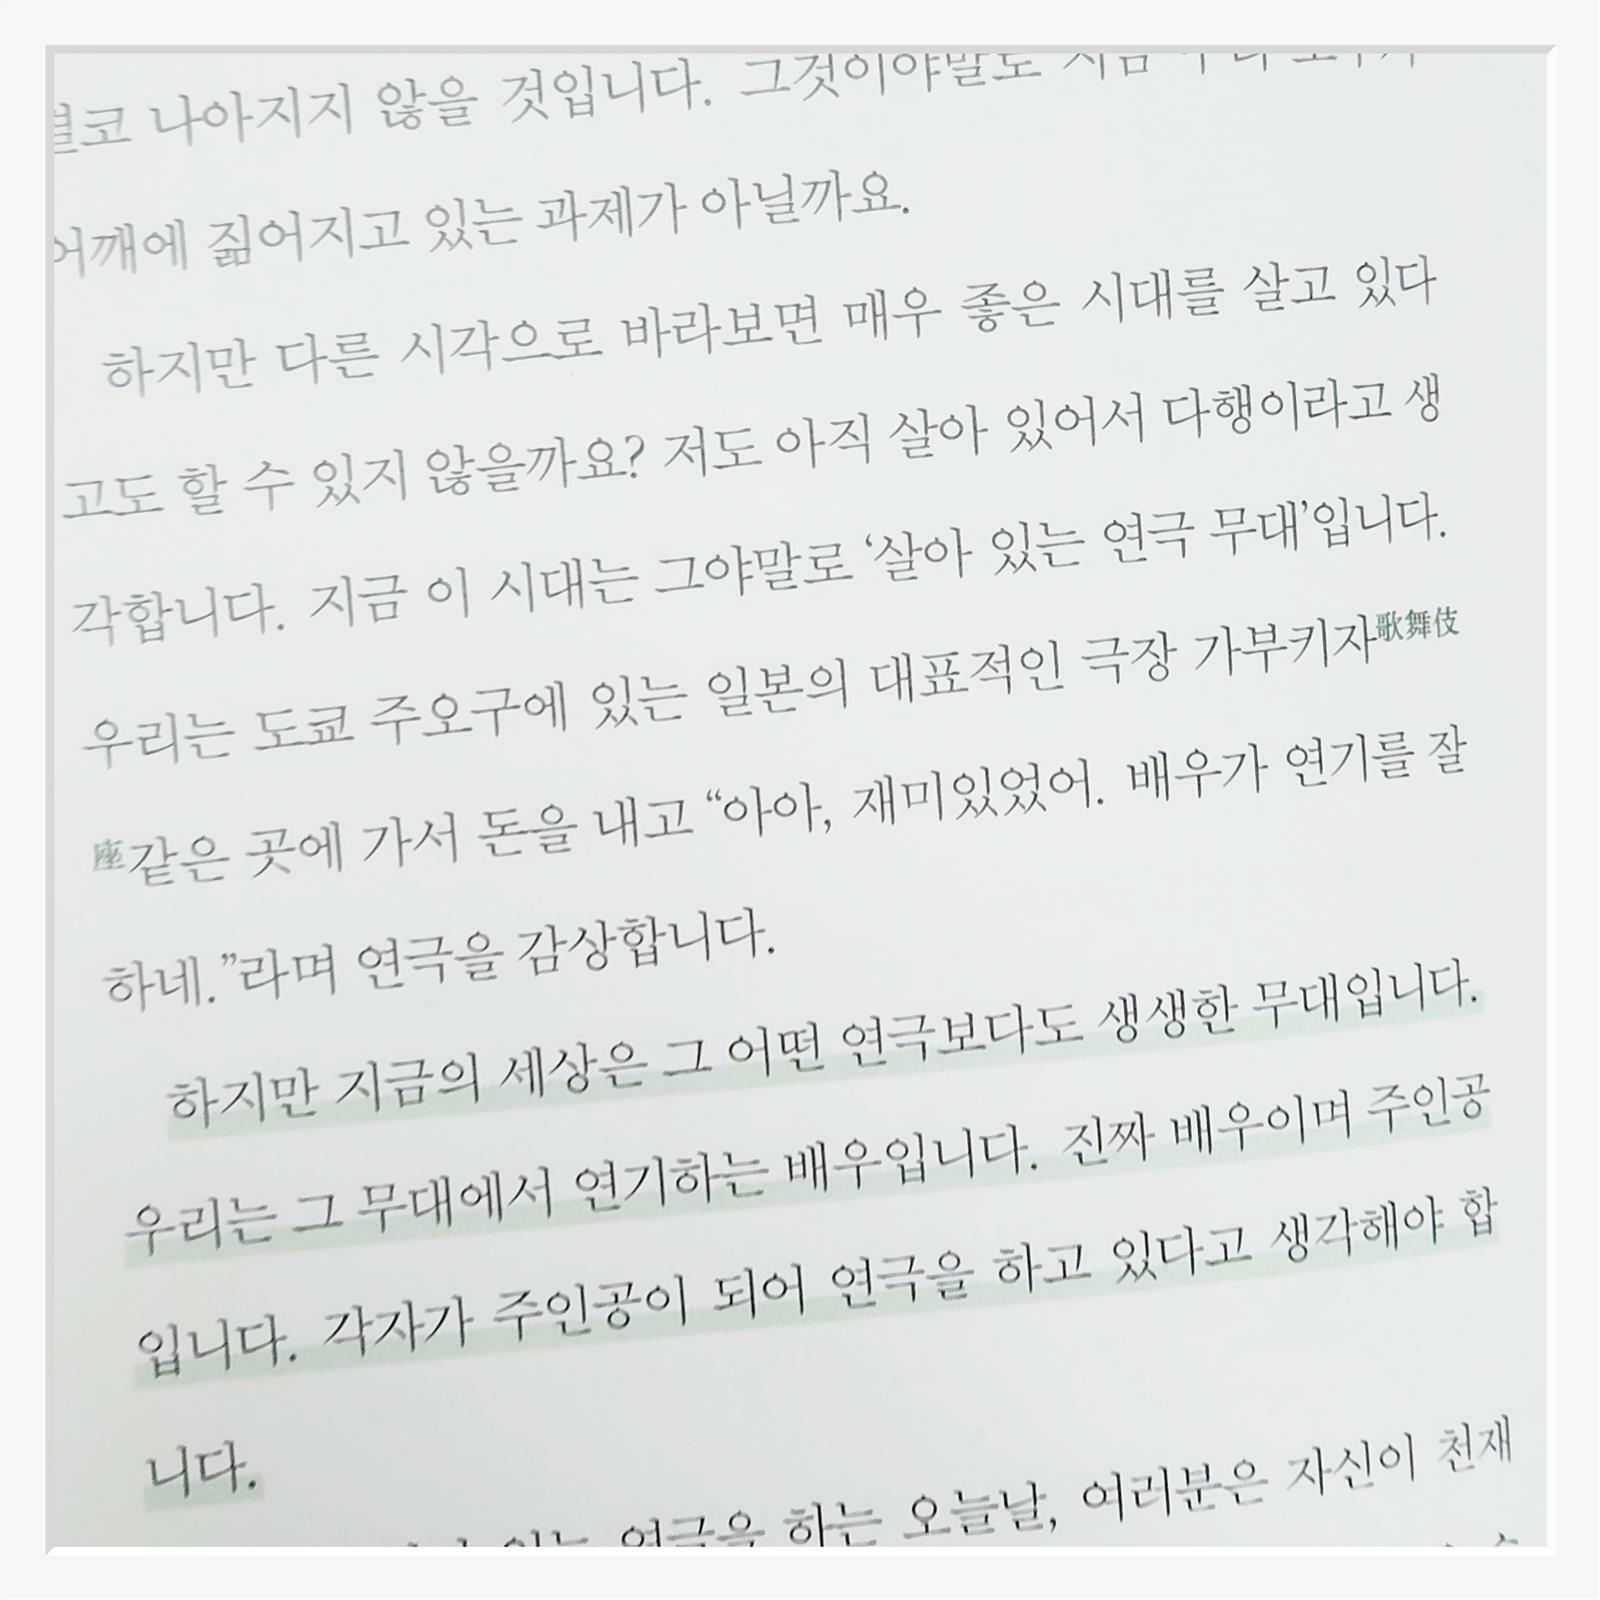 나아지지 않을 것입니다. 그것이야말로
어깨에 짊어지고 있는 과제가 아닐까요.
하지만 다른 시각으로 바라보면 매우 좋은 시대를 살고 있다
고도 할 수 있지 않을까요? 저도 아직 살아 있어서 다행이라고 생
각합니다. 지금 이 시대는 그야말로 ‘살아 있는 연극 무대’입니다.
우리는 도쿄 주오구에 있는 일본의 대표적인 극장 가부키자歌舞伎
座같은 곳에 가서 돈을 내고 “아아, 재미있었어. 배우가 연기를 잘
하네.”라며 연극을 감상합니다.
하지만 지금의 세상은 그 어떤 연극보다도 생생한 무대입니다.
우리는 그 무대에서 연기하는 배우입니다. 진짜 배우이며 주인공
입니다. 각자가 주인공이 되어 연극을 하고 있다고 생각해야 합
니다.
연극을 하는 오늘날, 여러분은 자신이 천재